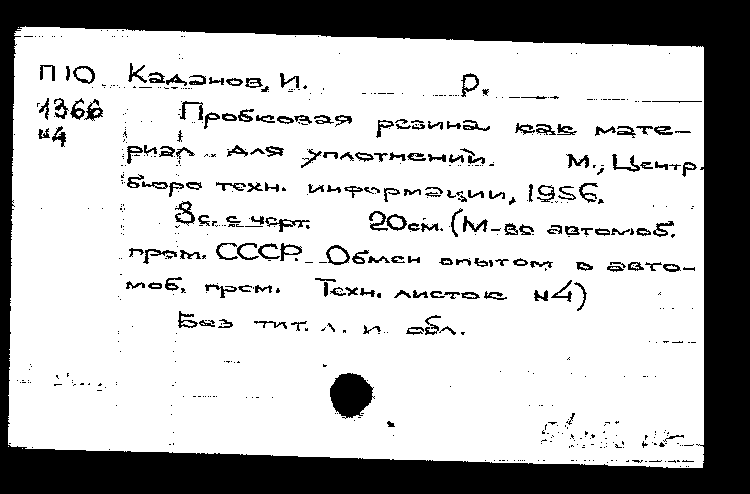 П10 Каданов, И. Р.
1366 Пробковая резина как мате-
№4
риал для уплотнений. М., Центр.
бюро техн. информации, 1956.
8с. с черт. 20см. (М-во автомоб.
пром. СССР. Обмен опытом в авто-
моб. пром. Техн. листок №4)
Без тит. л. и обл.